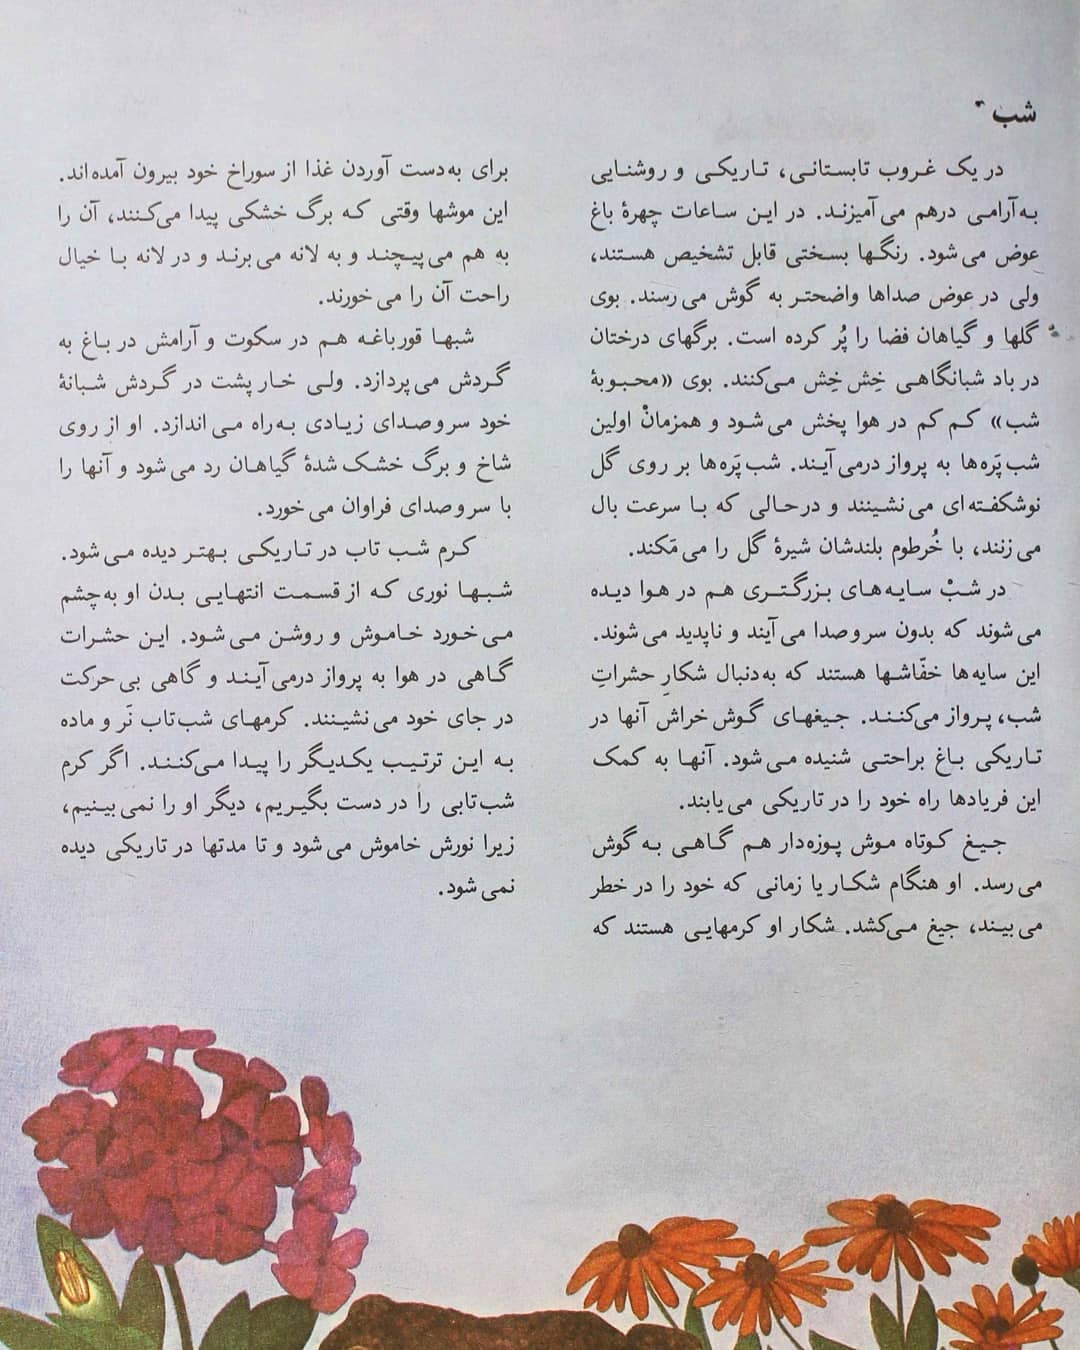 شب
در یک غروب تابستانی، تاریکی و روشنایی
به‌آرامی درهم می‌آمیزند. در این ساعات چهرهٔ باغ
عوض می‌شود. رنگها بسختی قابل تشخیص هستند،
ولی در عوض صداها واضحتر به گوش می‌رسند. بوی
گلها و گیاهان فضا را پُر کرده است. برگهای درختان
در باد شبانگاهی خِش‌خِش می‌کنند. بوی «محبوبهٔ
شب» کم کم در هوا پخش می‌شود و همزمانْ اولین
شب‌پَره‌ها به پرواز درمی‌آیند. شب‌پَره‌ها بر روی گل
نوشکفته‌ای می‌نشینند و درحالی که با سرعت بال
می‌زنند، با خُرطوم بلندشان شیرهٔ گل را می‌مَکند.
در شبْ سایه‌های بزرگتری هم در هوا دیده
می‌شوند که بدون سروصدا می‌آیند و ناپدید می‌شوند.
این سایه‌ها خفّاشها هستند که به‌دنبال شکارِ حشراتِ
شب، پرواز می‌کنند. جیغهای گوش‌خراش آنها در
تاریکی باغ براحتی شنیده می‌شود. آنها به کمک
این فریادها راه خود را در تاریکی می‌یابند.
جیغ کوتاه موش پوزه‌دار هم گاهی به گوش
می‌رسد. او هنگام شکار یا زمانی که خود را در خطر
می‌بیند، جیغ می‌کشد. شکار او کرمهایی هستند که
برای به‌دست آوردن غذا از سوراخ خود بیرون آمده‌اند.
این موشها وقتی که برگ خشکی پیدا می‌کنند، آن را
به هم می‌پیچند و به لانه می‌برند و در لانه با خیال
راحت آن را می‌خورند.
شبها قورباغه هم در سکوت و آرامش در باغ به
گردش می‌پردازد. ولی خارپشت در گردش شبانهٔ
خود سروصدای زیادی به‌راه می‌اندازد. او از روی
شاخ و برگ خشک شدهٔ گیاهان رد می‌شود و آنها را
با سروصدای فراوان می‌خورد.
کرم شب تاب در تاریکی بهتر دیده می‌شود.
شبها نوری که از قسمت انتهایی بدن او به‌چشم
می‌خورد خاموش و روشن می‌شود. این حشرات
گاهی در هوا به پرواز درمی‌آیند و گاهی بی‌حرکت
در جای خود می‌نشینند. کرمهای شب‌تاب نَر و ماده
به این ترتیب یکدیگر را پیدا می‌کنند. اگر کرم
شب‌تابی را در دست بگیریم، دیگر او را نمی‌بینیم،
زیرا نورش خاموش می‌شود و تا مدتها در تاریکی دیده
نمی‌شود.